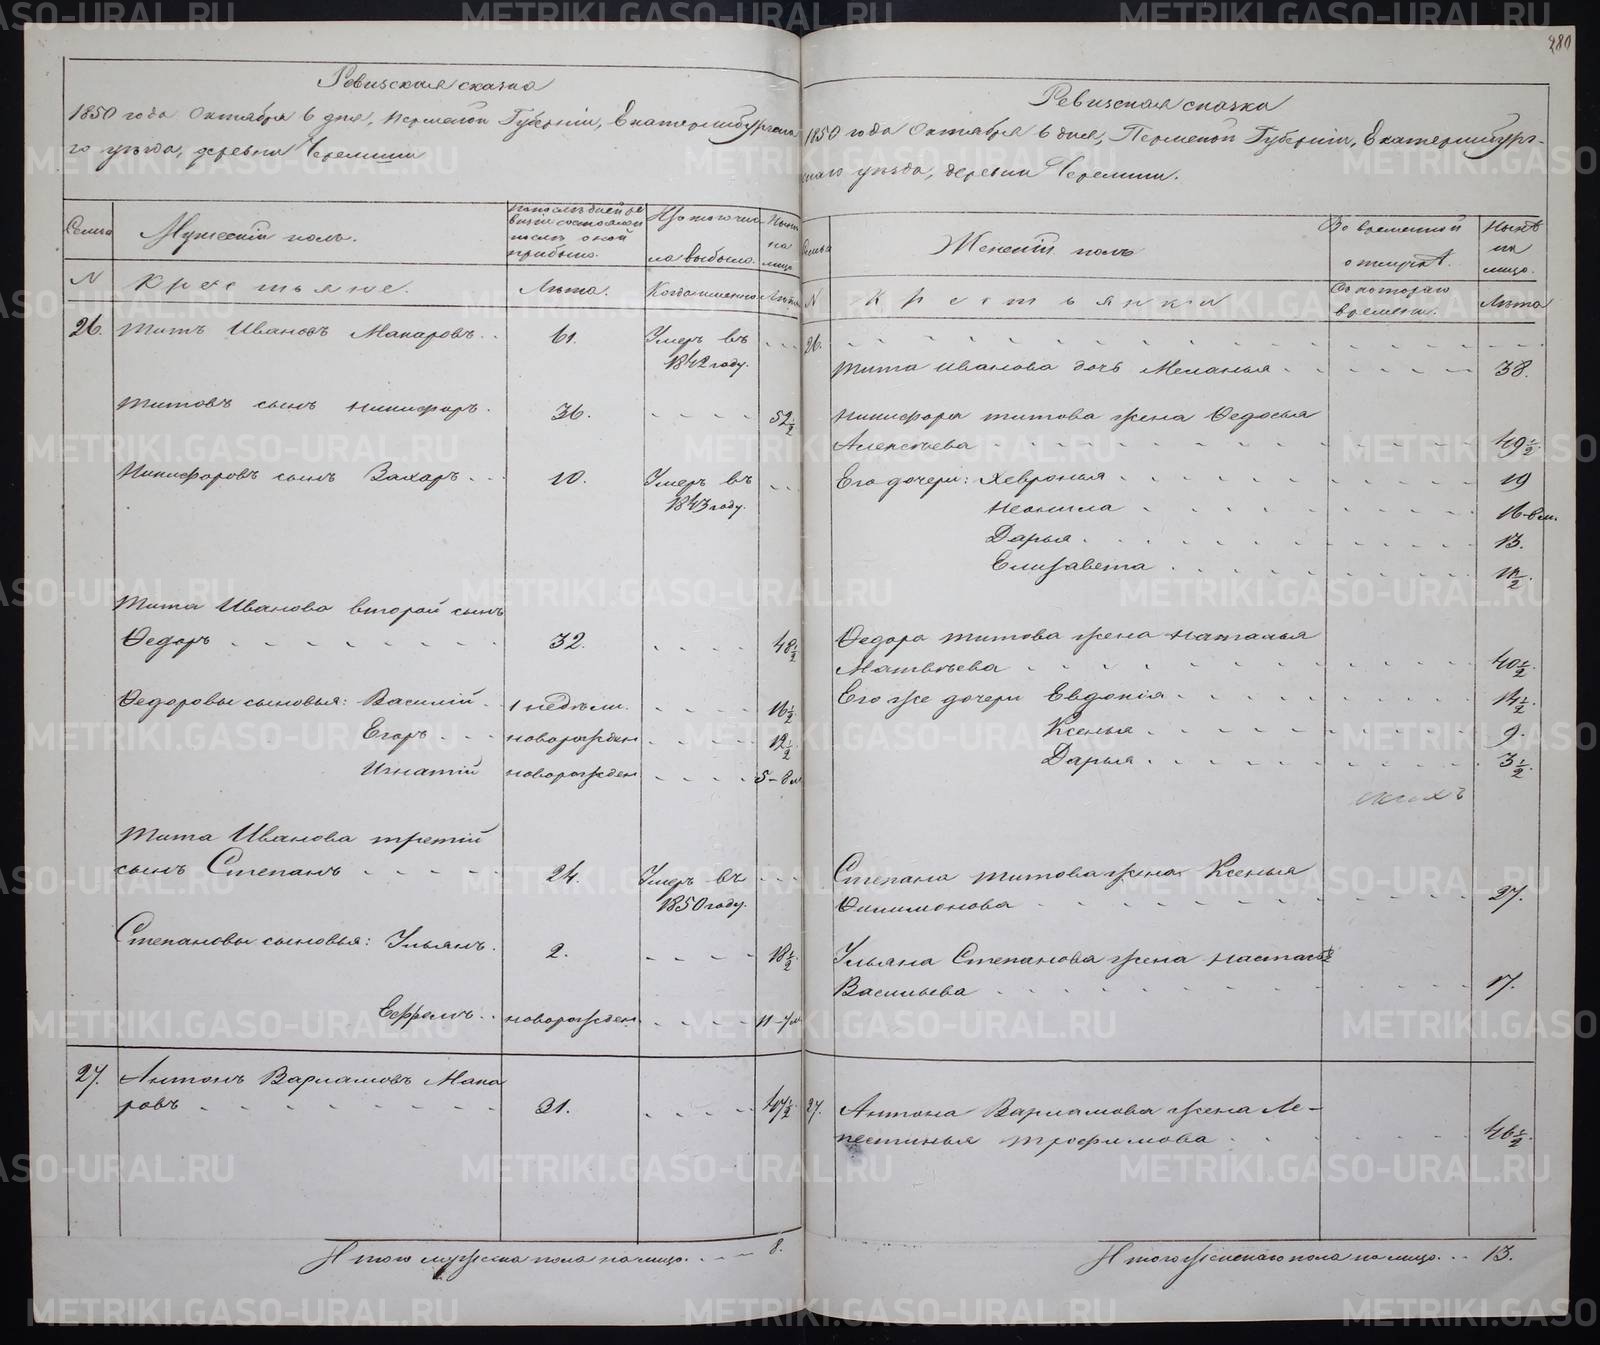 280
Ревизская сказка
1850 года Октября 6 дня, Пермской Губернiи, Екатеринбургска
го уѣзда, деревни Черемши
Семьи
Мужескiй полъ.
По послѣдней ре
визiи состояло и
послѣ оной
прибыло.
Изъ того чис
ла выбыло.
Нынѣ
на
лицо
N
Крестьяне.
Лѣта.
Когда именно
Лѣта
26.
Титъ Ивановъ Макаровъ
61.
Умеръ въ
1842 году.
Титовъ сынъ Никифоръ.
36.
52 1/2
Никифоровъ сынъ Захаръ
10.
Умеръ въ
1843 году.
Тита Иванова второй сынъ
Ѳедоръ
32.
48 1/2
Ѳедоровы сыновья: Василiй
1 недѣли.
16 1/2
Егоръ
новорожден
12 1/2
Игнатiй
новорожден
5-8 м
Тита Иванова третiй
сынъ Степанъ
24.
Умеръ въ
1850 году.
Степановы сыновья: Ульянъ.
2.
18 1/2
Ефремъ
новорожден.
11-7 м
27.
Антонъ Варламовъ Мака
ровъ
31.
47 1/2
Итого мужеска пола на лицо
8.
Ревизская сказка
1850 года Октября 6 дня, Пермской Губернiи, Екатеринбург-
скаго уѣзда, деревни Черемши.
Семьи
Женскiй полъ
Во временной
отлучкѣ.
Нынѣ
на
лицо.
N
Крестьянки
Съ котораго
времени.
Лѣта
26.
Тита Иванова дочь Меланья
38.
Никифора Титова жена Ѳедосья
Алексѣева
49 1/2
Его дочери: Хевронья
19
Неонила
16-8 м.
Дарья
13.
Елизавета
11 1/2.
Ѳедора Титова жена Наталья
Матвѣева
40 1/2.
Его же дочери Евдокiя
14 1/2.
Ксенья
9.
Дарья
3 1/2.
Степана Титова жена Ксенья
Филимонова
27.
Ульяна Степанова жена Настасья
Васильева
17.
27.
Антона Варламова жена Ле-
пестинья Трофимова
46 1/2.
Итого женскаго пола на лицо
13.
METRIKI.GASO-URAL.RU